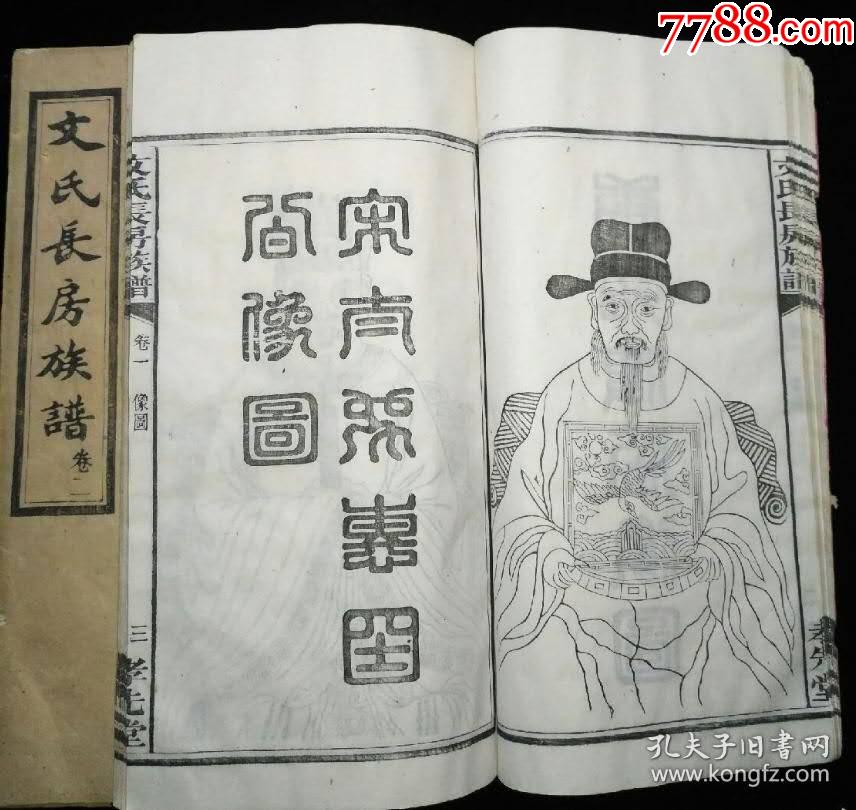 7788.com
文氏長房族譜
卷二
文氏長房族譜
卷一
像圖
三
孝先堂
宋太
公像圖
文氏長房族譜
孝先堂
孔夫子旧书网
www.kongfz.com